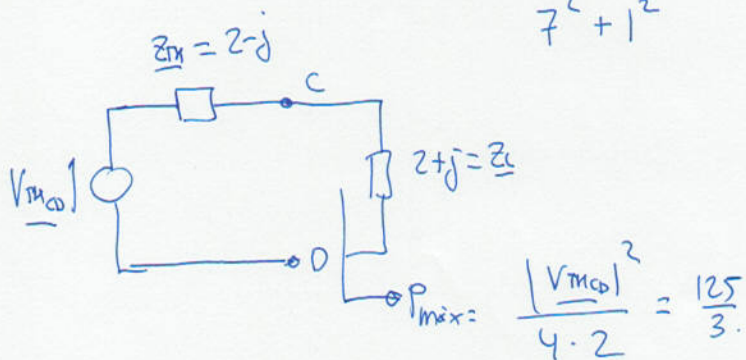 7² + 1²
Z_TH = 2-j
C
V_THCD
2+j = Z_L
D
Pmáx = |V_THCD|² / 4·2 = 125/3.